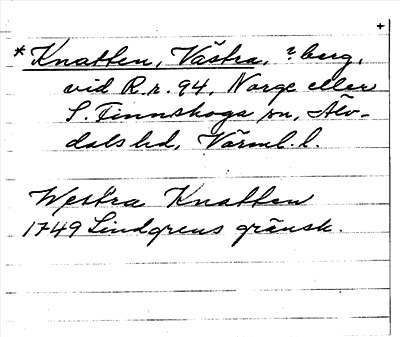 +
*Knatten, Västra, ? berg,
vid R.r. 94, Norge eller
S. Finnskoga sn, Älv-
dals hd, Värml. l.
Westra Knatten
1749 Lindgrens gränsk.